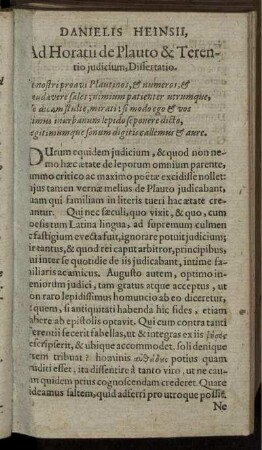 DANIELIS HEINSII,
Ad Horatii de Plauto & Teren-
tio judicium, Dissertatio.
nostri proavi Plautinos, & numeros, &
laudavere sales; nimium patienter utrumque,
dicam stulte, mirati: si modo ego & vos
inurbanum lepido seponere dicto,
legitimumque sonum digitis callemus & aure.
DUrum equidem judicium, & quod non ne-
mo hac ætate de leporum omnium parente,
summo critico ac maximo poëtæ excidisse nollet:
quasi tamen vernæ melius de Plauto judicabant,
quam qui familiam in literis tueri hac ætate cre-
antur. Qui nec sæculi, quo vixit, & quo, cum
Latina lingua, ad supremum culmen
fastigium evecta fuit, ignorare potuit judicium:
& quod rei caput arbitror, principibus,
inter se quotidie de iis judicabant, intime fa-
miliaris ac amicus. Augusto autem, optimo in-
geniorum judici, tam gratus atque acceptus, ut
non raro lepidissimus homuncio ab eo diceretur,
quem, si antiquitati habenda hic fides, etiam
habere ab epistolis optavit. Qui cum contra tanti
Terentii fecerit fabellas, ut & integras ex iis
exscripserit, & ubique accommodet. soli denique
artem tribuat? hominis potius quam
judicii esset, ita dissentire à tanto viro, ut ne cau-
sam quidem prius cognoscendam crederet. Quare
videamus saltem, quid adferri pro utroque possit.
Ne